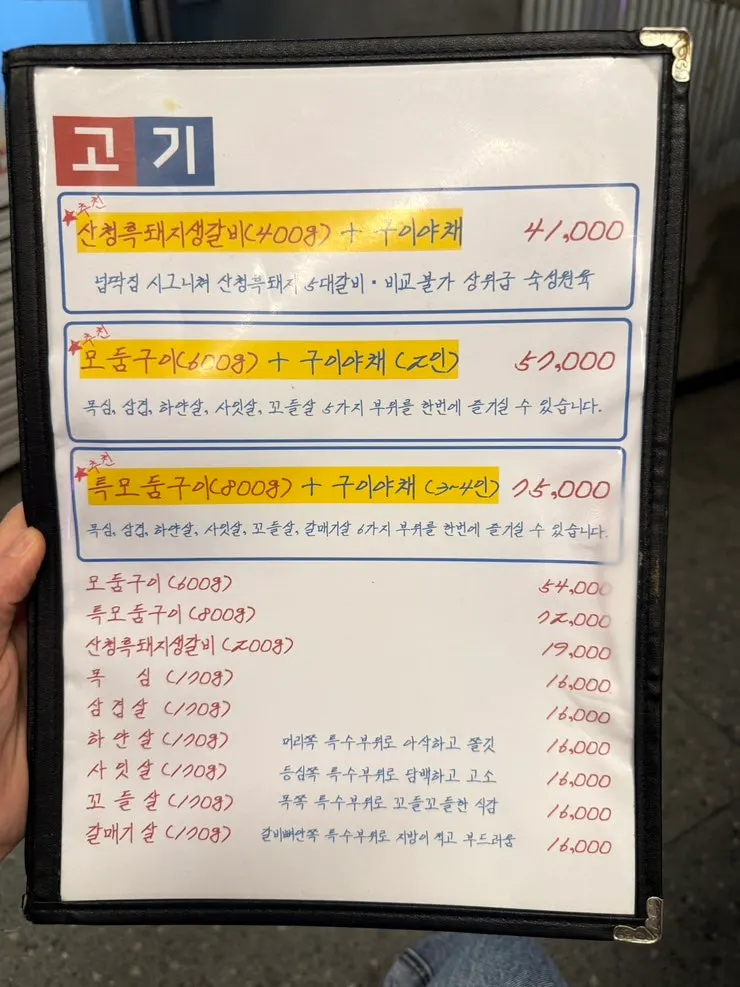 고기
★추천
산청흑돼지생갈비(400g) + 구이야채 41,000
넙딱집 시그니쳐 산청흑돼지 5대갈비·비교불가 상위급 숙성원육
★추천
모둠구이(600g) + 구이야채 (2인) 57,000
목심, 삼겹, 하얀살, 사잇살, 꼬들살 5가지 부위를 한번에 즐기실 수 있습니다.
★추천
특모둠구이(800g) + 구이야채 (3~4인) 75,000
목심, 삼겹, 하얀살, 사잇살, 꼬들살, 갈매기살 6가지 부위를 한번에 즐기실 수 있습니다.
모둠구이(600g) 54,000
특모둠구이(800g) 72,000
산청흑돼지생갈비(200g) 19,000
목 심 (170g) 16,000
삼겹살 (170g) 16,000
하얀살 (170g) 머리쪽 특수부위로 아삭하고 쫄깃 16,000
사잇살 (170g) 등심쪽 특수부위로 담백하고 고소 16,000
꼬들살 (170g) 목쪽 특수부위로 꼬들꼬들한 식감 16,000
갈매기살 (170g) 갈비뼈안쪽 특수부위로 지방이 적고 부드러움 16,000